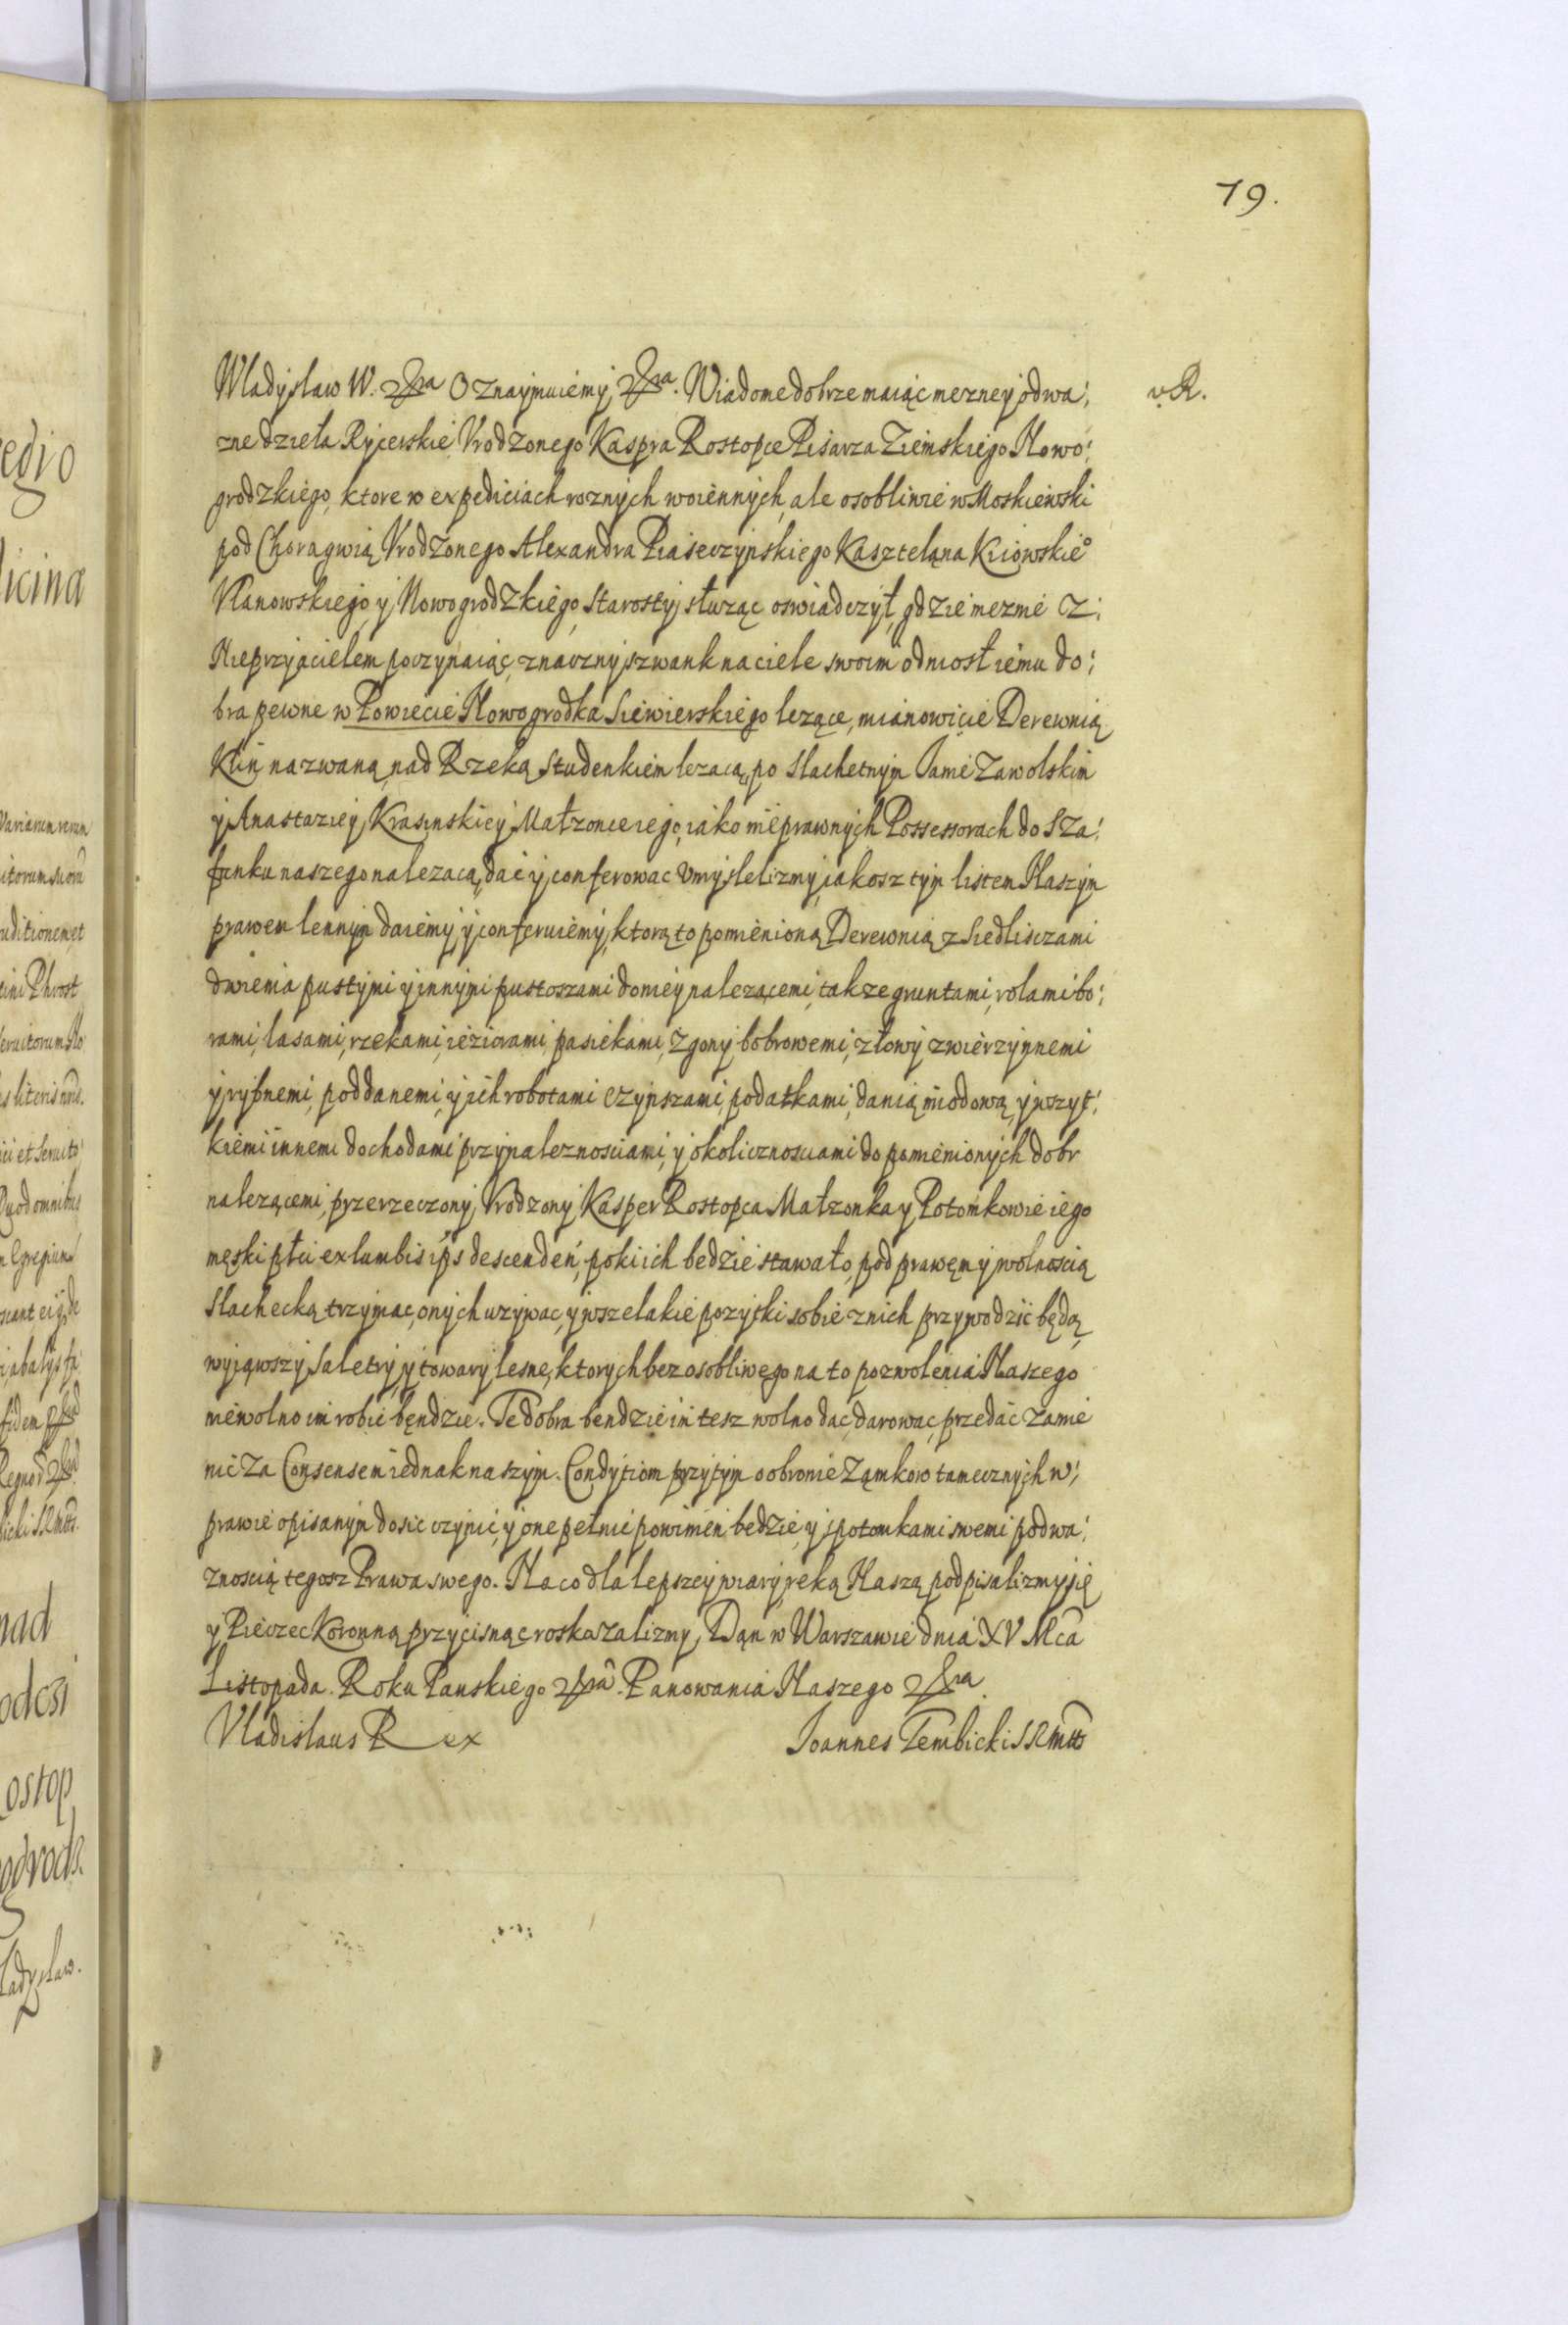 79.
Wladysław W. &ra Oznaymuiemy &ra. Wiadome dobrze maiąc mezne y odwa:
v. R.
zne dzieła Rycerskie Vrodzonego Kaspra Rostopce Pisarza Ziemskiego Nowo:
grodzkiego, ktore w expediciach roznych woiennych, ale osobliwie w Moskiewski
pod Choragwią Vrodzonego Alexandra Piaseczynskiego Kasztelana Kiiowskie°
Vlanowskiego y Nowogrodzkiego Starosty słuząc oswiadczył, gdzie mezmie z:
Nieprzyacielem poczynaiąc, znaczny szwank na ciele swoim odniosł iemu do:
bra pewne w Powiecie Nowogrodka Siewierskiego lezące, mianowicie Derewnią
Klin nazwaną nad Rzeką Studenkiem lezacą, po Slachetnym Janie Zawolskim
y Anastaziey Krasinskiey Małzonce iego, iako nieprawnych Possessorach do Sza:
funku naszego nalezacą, dać y conferowac vmyslelizmy, iakosz tym listem Naszym
prawem lennym daiemy y conferuiemy, ktorą to pomienioną Derewnią z Siedliszczami
dwiema pustymi y innymi pustoszami do niey nalezącemi, takze gruntami, rolami bo:
rami, lasami, rzekami, ieziorami, pasiekami, zgony bobrowemi, z łowy zwierzynnemi
y rybnemi, poddanemi, y ich robotami czynszami, podatkami, danią miodową, y wszyt:
kiemi innemi dochodami przynaleznosciami, y okolicznosciami do pomienionych dobr
nalezącemi, przerzeczony Vrodzony Kasper Rostopca Małzonka y Potomkowie iego
męski płci ex lumbis ips descenden, poki ich bedzie stawało, pod prawęm y wolnoscią
Slachecką trzymac, onych uzywac, y wszelakie pozytki sobie z nich przywodzić będą,
wyiąwszy Saletry, y towary lesne, ktorych bez osobliwego na to pozwolenia Naszego
niewolno im robić będzie. Te dobra bendzie im tesz wolno dac, darowac, przedać zamie
nić za Consensem iednak naszym. Condytiom przytym o obronie Zamkow tamecznych w:
prawie opisanym dosic czynić, y one pełnić powinien bedzie, y s potomkami swemi pod wa:
znoscią tegosz Prawa swego. Na co dla lepszey wiary, reką Naszą podpisalizmy się
y Pieczec Koronną przycisnąc roskazalizmy, Dan w Warszawie dnia XV Mca
Listopada. Roku Panskiego &ra. Panowania Naszego &ra.
Vladislaus Rex
Joannes Gembicki SRMtis